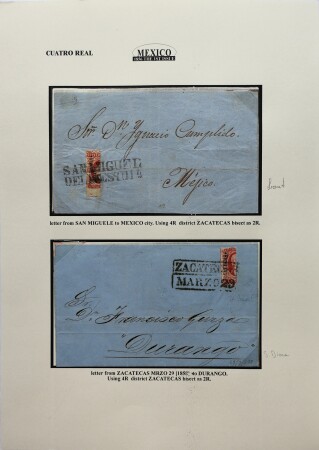 CUATRO REAL
MEXICO
1856 THE 1ST ISSUE
Sor. Dn. Ygnacio Cumplido.
SAN MIGUEL
Méjico.
letter from SAN MIGUELE to MEXICO city. Using 4R district ZACATECAS bisect as 2R.
ZACATECAS
MARZO 29
Sor.
Dn. Francisco Gurza
Durango
letter from ZACATECAS MRZO 29 to DURANGO.
Using 4R district ZACATECAS bisect as 2R.